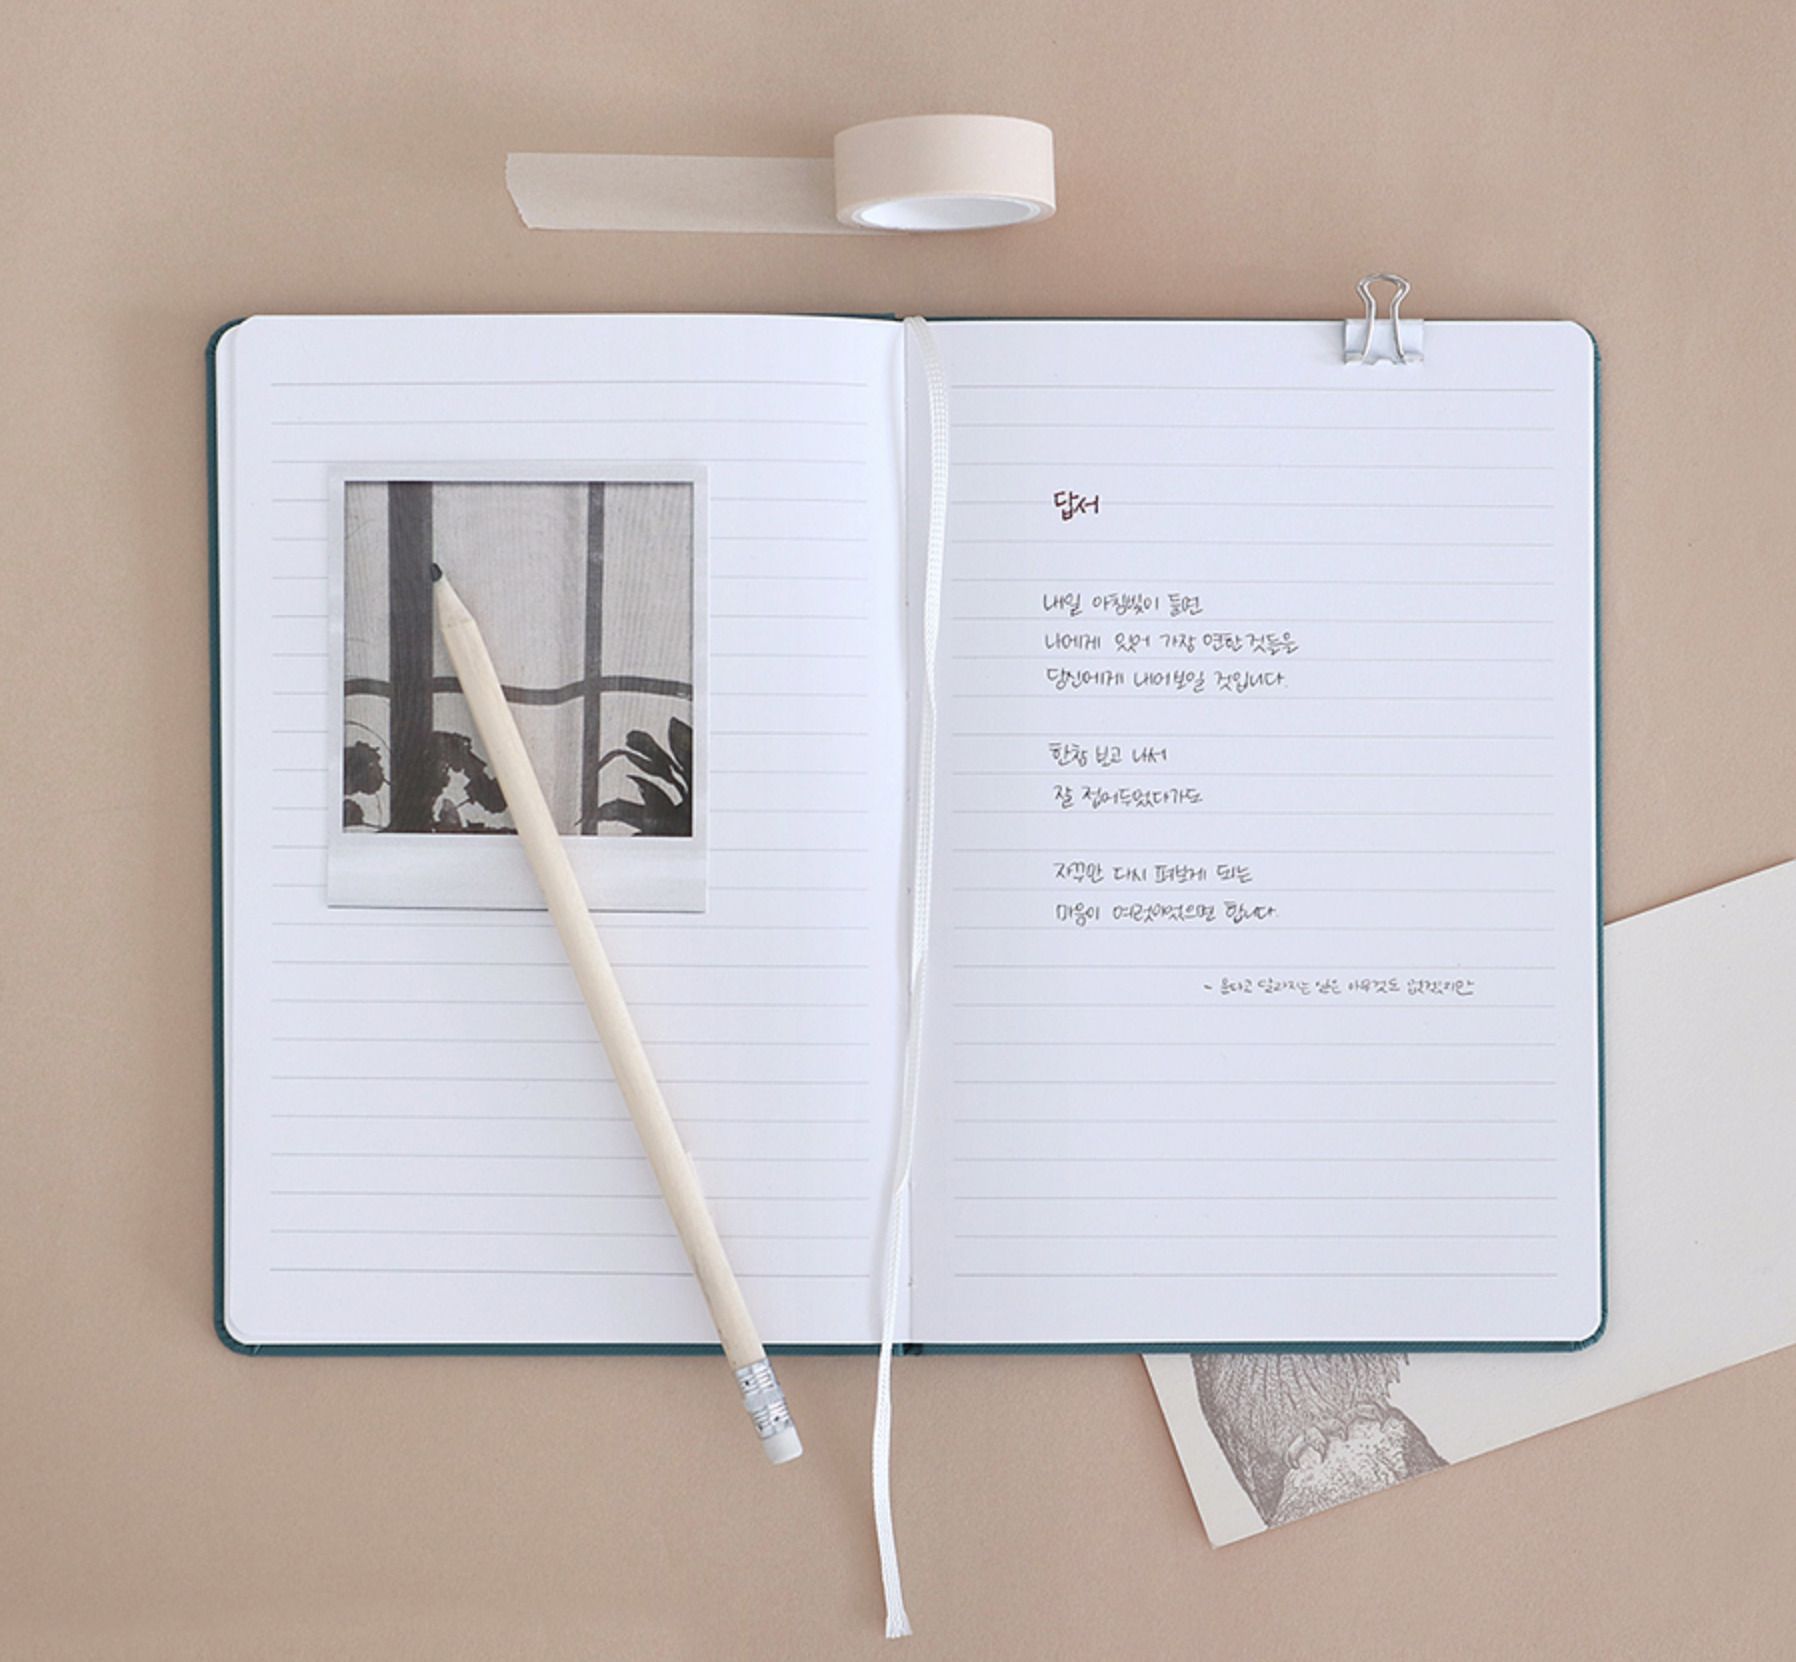 답서
내일 아침빛이 들면
나에게 있어 가장 연한 것들을
당신에게 내어보일 것입니다.
한참 보고 나서
잘 접어두었다가도
자꾸만 다시 펴보게 되는
마음이 여럿이었으면 합니다.
- 운다고 달라지는 일은 아무것도 없겠지만